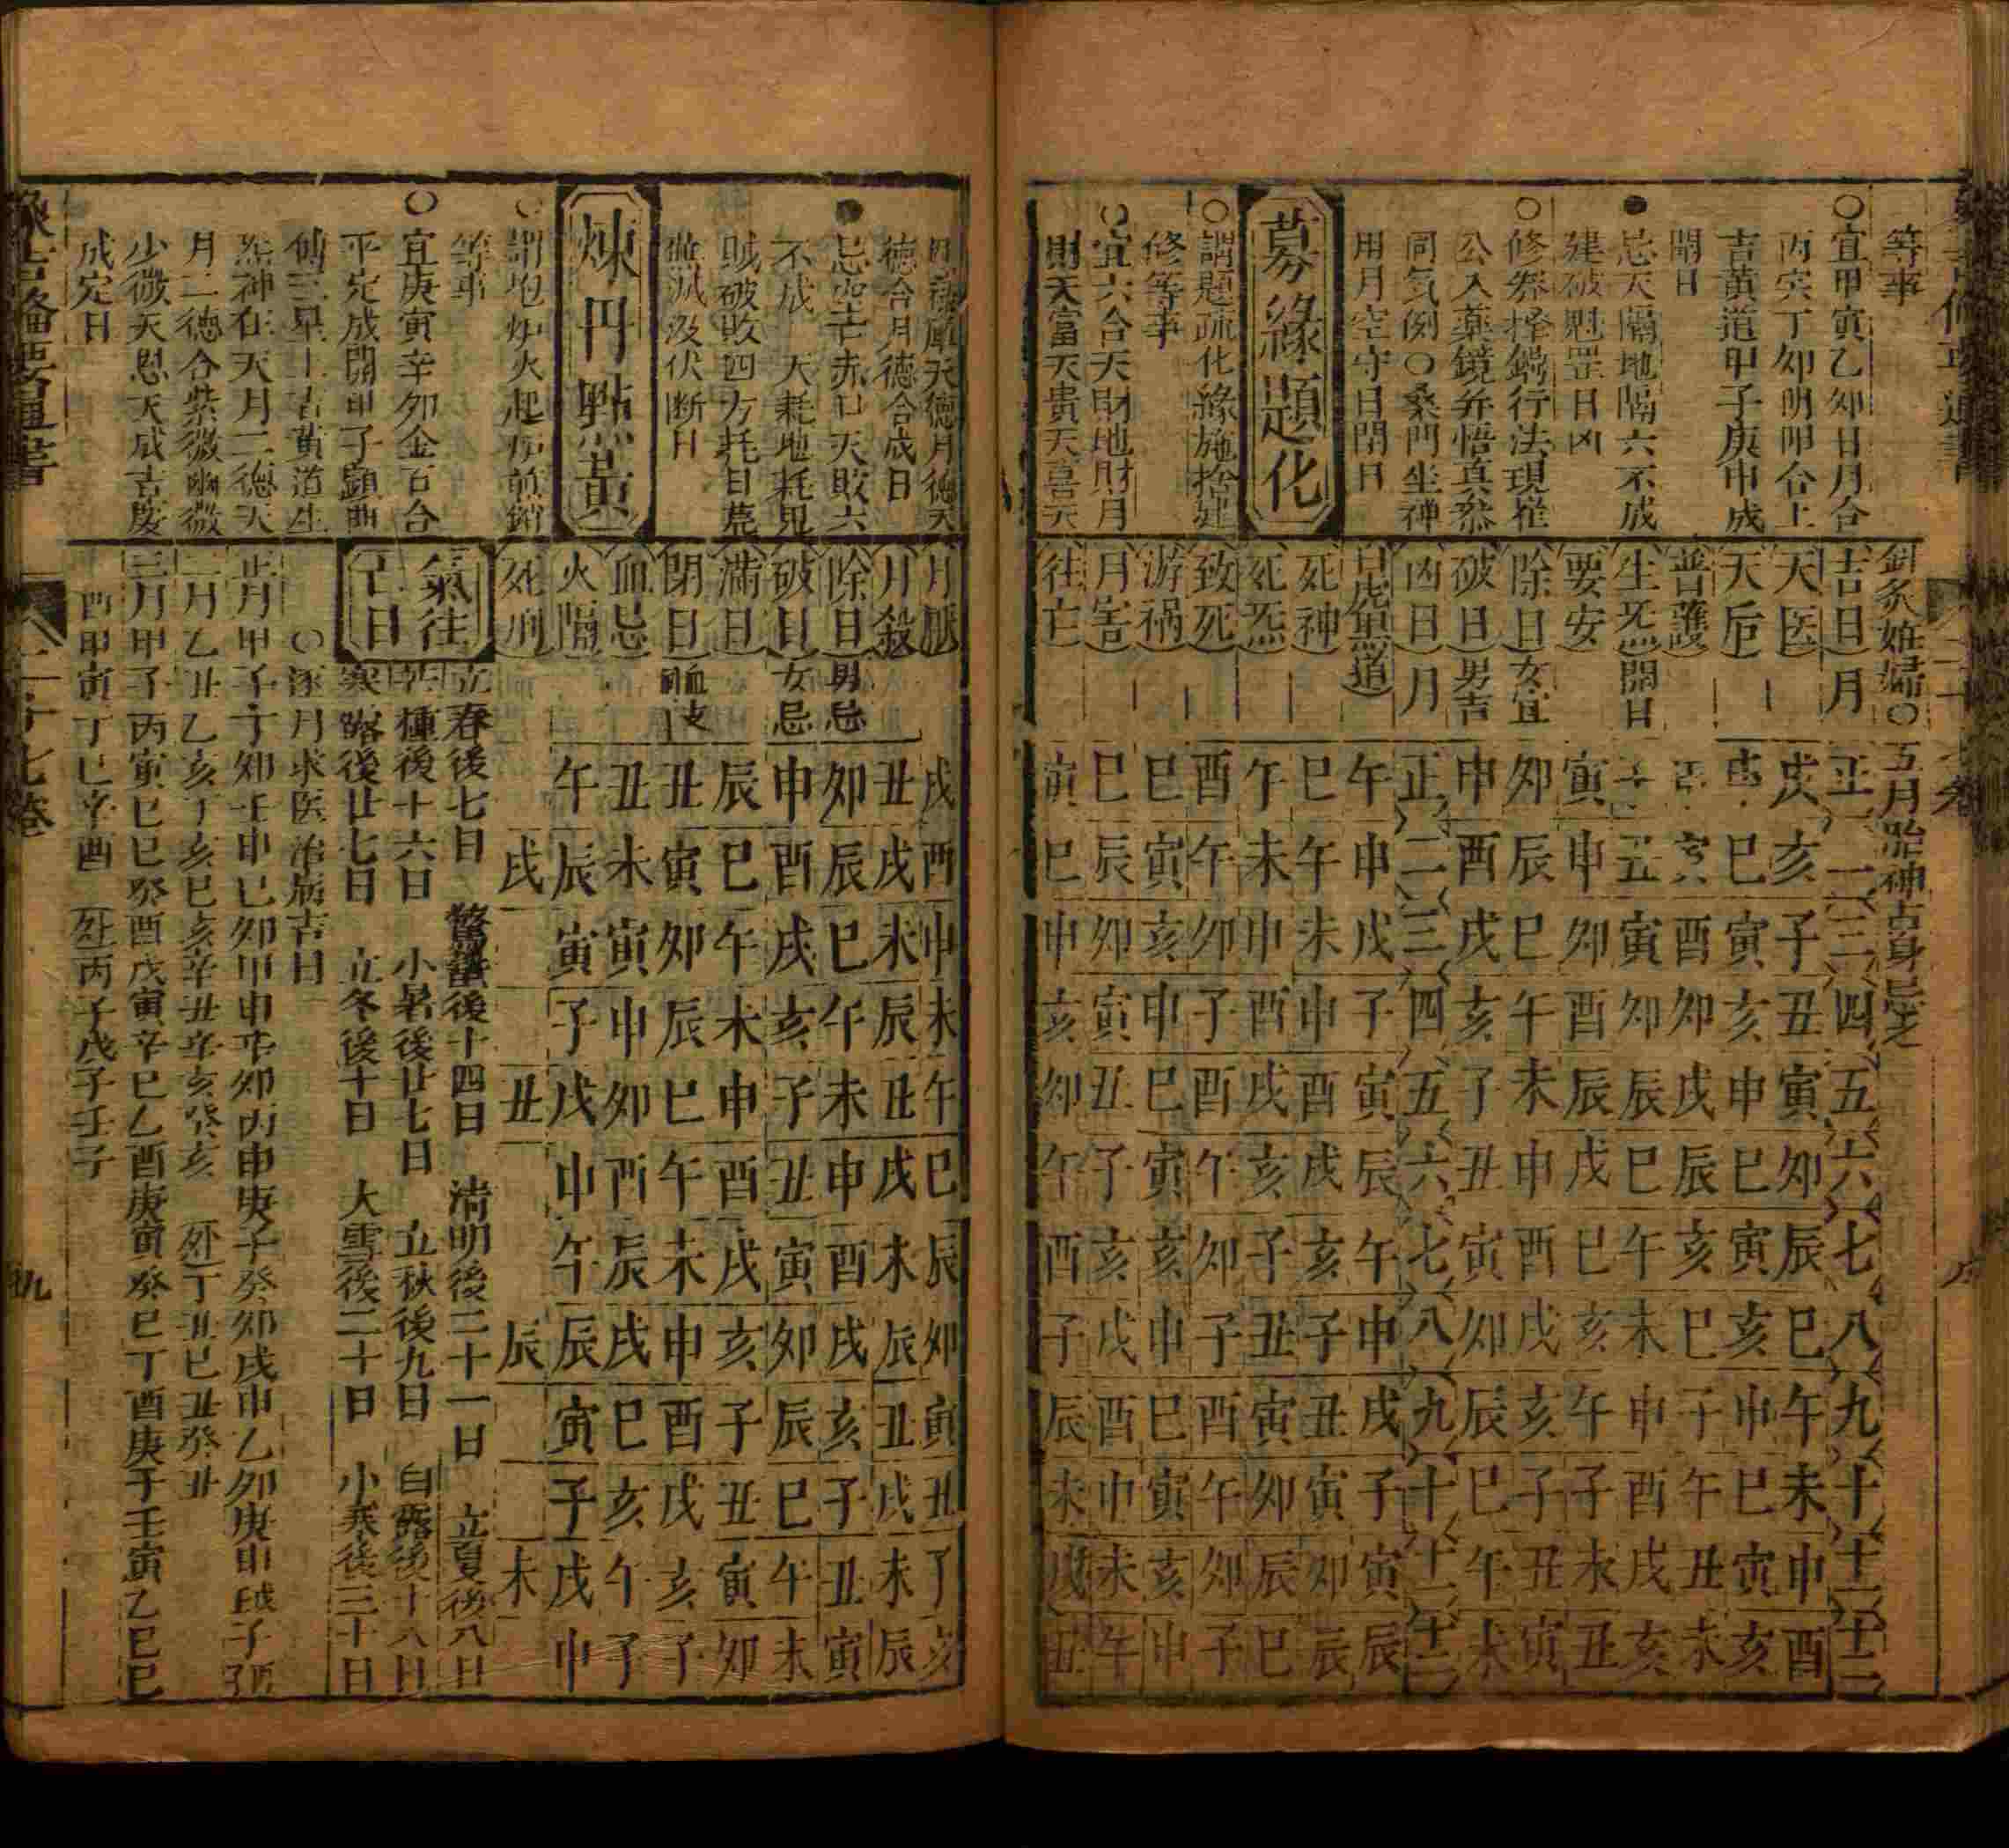 等事
○宜甲寅乙卯日月合
丙寅丁卯明陽合上
吉黃道甲子庚申成
開日
●忌天隔地隔六不成
建破魁罡日凶
○修養擇鏡行法現在
公入藥鏡并悟真叅
同気例○桑門坐禅
用月空守日閉日
募緣題化
○謂題疏化緣施捨建
修等事
○宜六合天財地財月
財天富天貴天喜天
針灸姙婦○五月胎神占身忌之
吉日月 正 二 三 四 五 六 七 八 九 十 十一 十二
天医 戌 亥 子 丑 寅 卯 辰 巳 午 未 申 酉
天后 巳 寅 亥 申 巳 寅 亥 申 巳 寅 亥
普護 亥 酉 卯 戌 辰 亥 巳 子 午 丑 未
生炁開日 子 丑 寅 卯 辰 巳 午 未 申 酉 戌 亥
要安 寅 申 卯 酉 辰 戌 巳 亥 午 子 未 丑
除日女宜 卯 辰 巳 午 未 申 酉 戌 亥 子 丑 寅
破日男吉 申 酉 戌 亥 子 丑 寅 卯 辰 巳 午 未
凶日月 正 二 三 四 五 六 七 八 九 十 十一 十二
白虎黑道 午 申 戌 子 寅 辰 午 申 戌 子 寅 辰
死神 巳 午 未 申 酉 戌 亥 子 丑 寅 卯 辰
死炁 午 未 申 酉 戌 亥 子 丑 寅 卯 辰 巳
致死 酉 午 卯 子 酉 午 卯 子 酉 午 卯 子
游祸 巳 寅 亥 申 巳 寅 亥 申 巳 寅 亥 申
月害 巳 辰 卯 寅 丑 子 亥 戌 酉 申 未 午
往亡 寅 巳 申 亥 卯 午 酉 子 辰 未 戌 丑
庫天德月德天
德合月德合成日
●忌空亡赤口天敗六
不成 天耗地耗鬼
賊破敗四方耗日荒
蕪滅没伏断日
煉丹點黃
○謂炮炉火起炉煎銷
等事
○宜庚寅辛卯金石合
平定成開甲子顯曲
傅三星上吉黃道生
炁神在天月二德天
月二德合紫微幽微
少微天恩天成吉慶
成定日
月厭 戌 酉 申 未 午 巳 辰 卯 寅 丑 子 亥
月殺 丑 戌 未 辰 丑 戌 未 辰 丑 戌 未 辰
除日男忌 卯 辰 巳 午 未 申 酉 戌 亥 子 丑 寅
破日女忌 申 酉 戌 亥 子 丑 寅 卯 辰 巳 午 未
滿日 辰 巳 午 未 申 酉 戌 亥 子 丑 寅 卯
閉日血支同 丑 寅 卯 辰 巳 午 未 申 酉 戌 亥 子
血忌 丑 未 寅 申 卯 酉 辰 戌 巳 亥 午 子
火隔 午 辰 寅 子 戌 申 午 辰 寅 子 戌 申
死刑 戌 丑 辰 未
氣往亡日
立春後七日 驚蟄後十四日 清明後二十一日 立夏後八日
芒種後十六日 小暑後廿七日 立秋後九日 白露後十八日
寒露後廿七日 立冬後十日 大雪後二十日 小寒後三十日
○逐月求医治病吉日
正月甲子丁卯壬申己卯甲申辛卯丙申庚子癸卯戊申乙卯庚申
二月乙丑乙亥丁亥己亥辛丑辛亥癸亥 外丁丑己丑癸丑
三月甲子丙寅己巳癸酉戊寅辛巳乙酉庚寅癸巳丁酉庚子壬寅乙巳
甲寅丁巳辛酉 外丙子戊子壬子